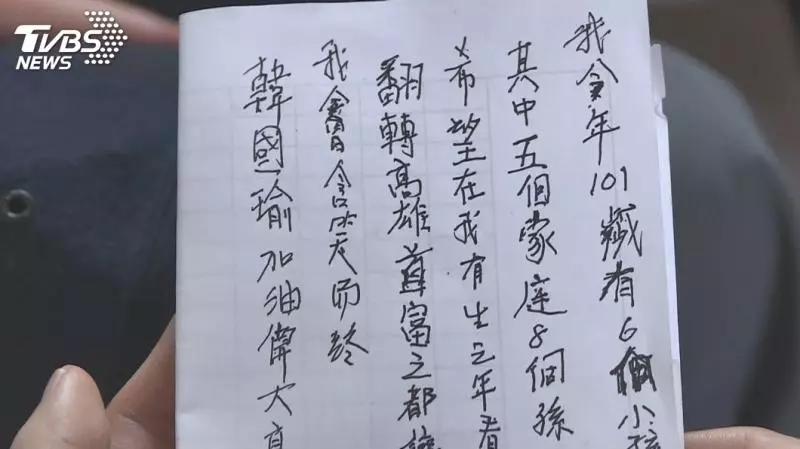 TVBS
NEWS
我今年101歲有6個小孩
其中五個家庭8個孫
希望在我有生之年看
翻轉高雄首富之都
我會含笑而終
韓國瑜加油偉大